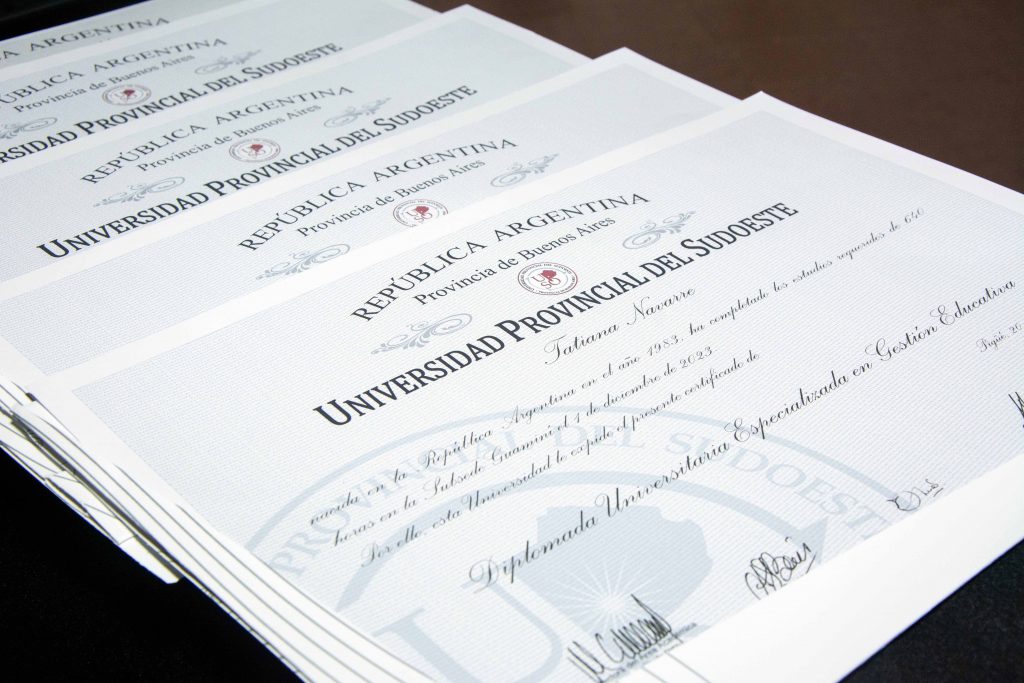 A ARGENTINA
ÚBLICA ARGENTINA
Provincia de Buenos Aires
RSIDAD PROVINCIAL DEL SUDOESTE
REPÚBLICA ARGENTINA
Provincia de Buenos Aires
UNIVERSIDAD PROVINCIAL DEL SUDOESTE
REPÚBLICA ARGENTINA
Provincia de Buenos Aires
REPÚBLICA ARGENTINA
Provincia de Buenos Aires
UNIVERSIDAD PROVINCIAL DEL SUDOESTE
Tatiana Navarre
nacida en la República Argentina en el año 1983, ha completado los estudios requeridos de 640
horas en la Subsede Guaminí el 4 de diciembre de 2023
Por ello, esta Universidad le expide el presente certificado de
Diplomada Universitaria Especializada en Gestión Educativa
Pigüé, 20
PROVINCIAL DEL SUDOESTE
U